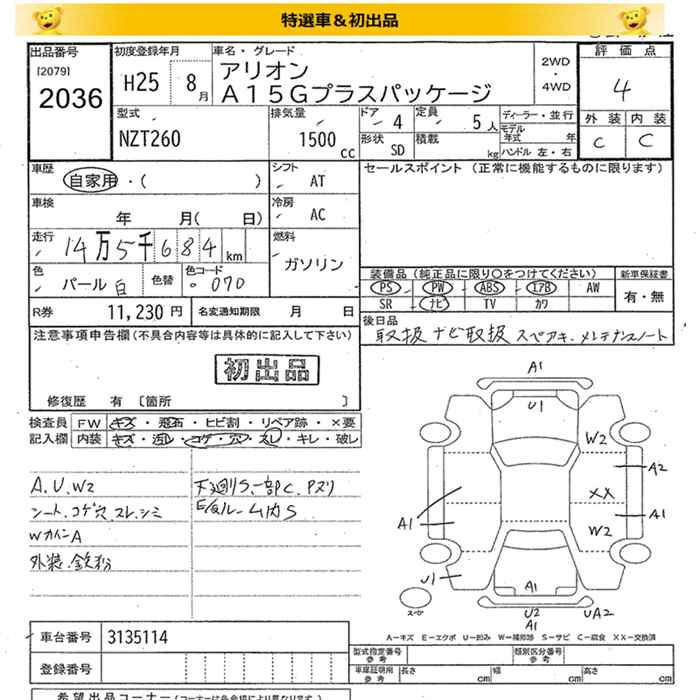 特選車＆初出品
出品番号 初度登録年月 車名・グレード 評価点
[2079] H25 8月 アリオン 2WD 4
2036 A15Gプラスパッケージ 4WD
型式 排気量 ドア 定員 ディーラー・並行 外装 内装
NZT260 1500cc 4 5人 モデル年式 年 C C
形状 SD 積載 kg ハンドル 左・右
車歴 自家用・( ) シフト AT セールスポイント (正常に機能するものに限ります)
車検 年 月( 日) 冷房 AC
走行 14万5千684km 燃料 ガソリン
色 パール白 色替 色コード 070
装備品 (純正品に限り〇をつけてください) 新車保証書
PS PW ABS エアB AW 有・無
SR ナビ TV カワ
R券 11,230円 名変通知期限 月 日
後日品
取扱 ナビ取扱 スペアキー.メンテナンスノート
注意事項申告欄(不具合内容等は具体的に記入して下さい)
初出品
修復歴 有 〔箇所 〕
検査員 FW キズ・飛石・ヒビ割・リペア跡・×要
記入欄 内装 キズ・汚レ・コゲ・穴・スレ・キレ・破レ
A.U.W2 下廻りS.一部C.Pヌリ
シート.コゲ穴.スレ.シミ
WカイニA
外装.鉄粉
A1
U1
W2
A2
XX
A1 A1
W2
U1
A1
U2 UA2
A1
A－キズ E－エクボ U－凹み W－補修跡 S－サビ C－腐食 XX－交換済
車台番号 3135114
型式指定番号 参考 類別区分番号 参考
登録番号 車庫証明用 参考 長さ cm 幅 cm 高さ cm
希望出品コーナー